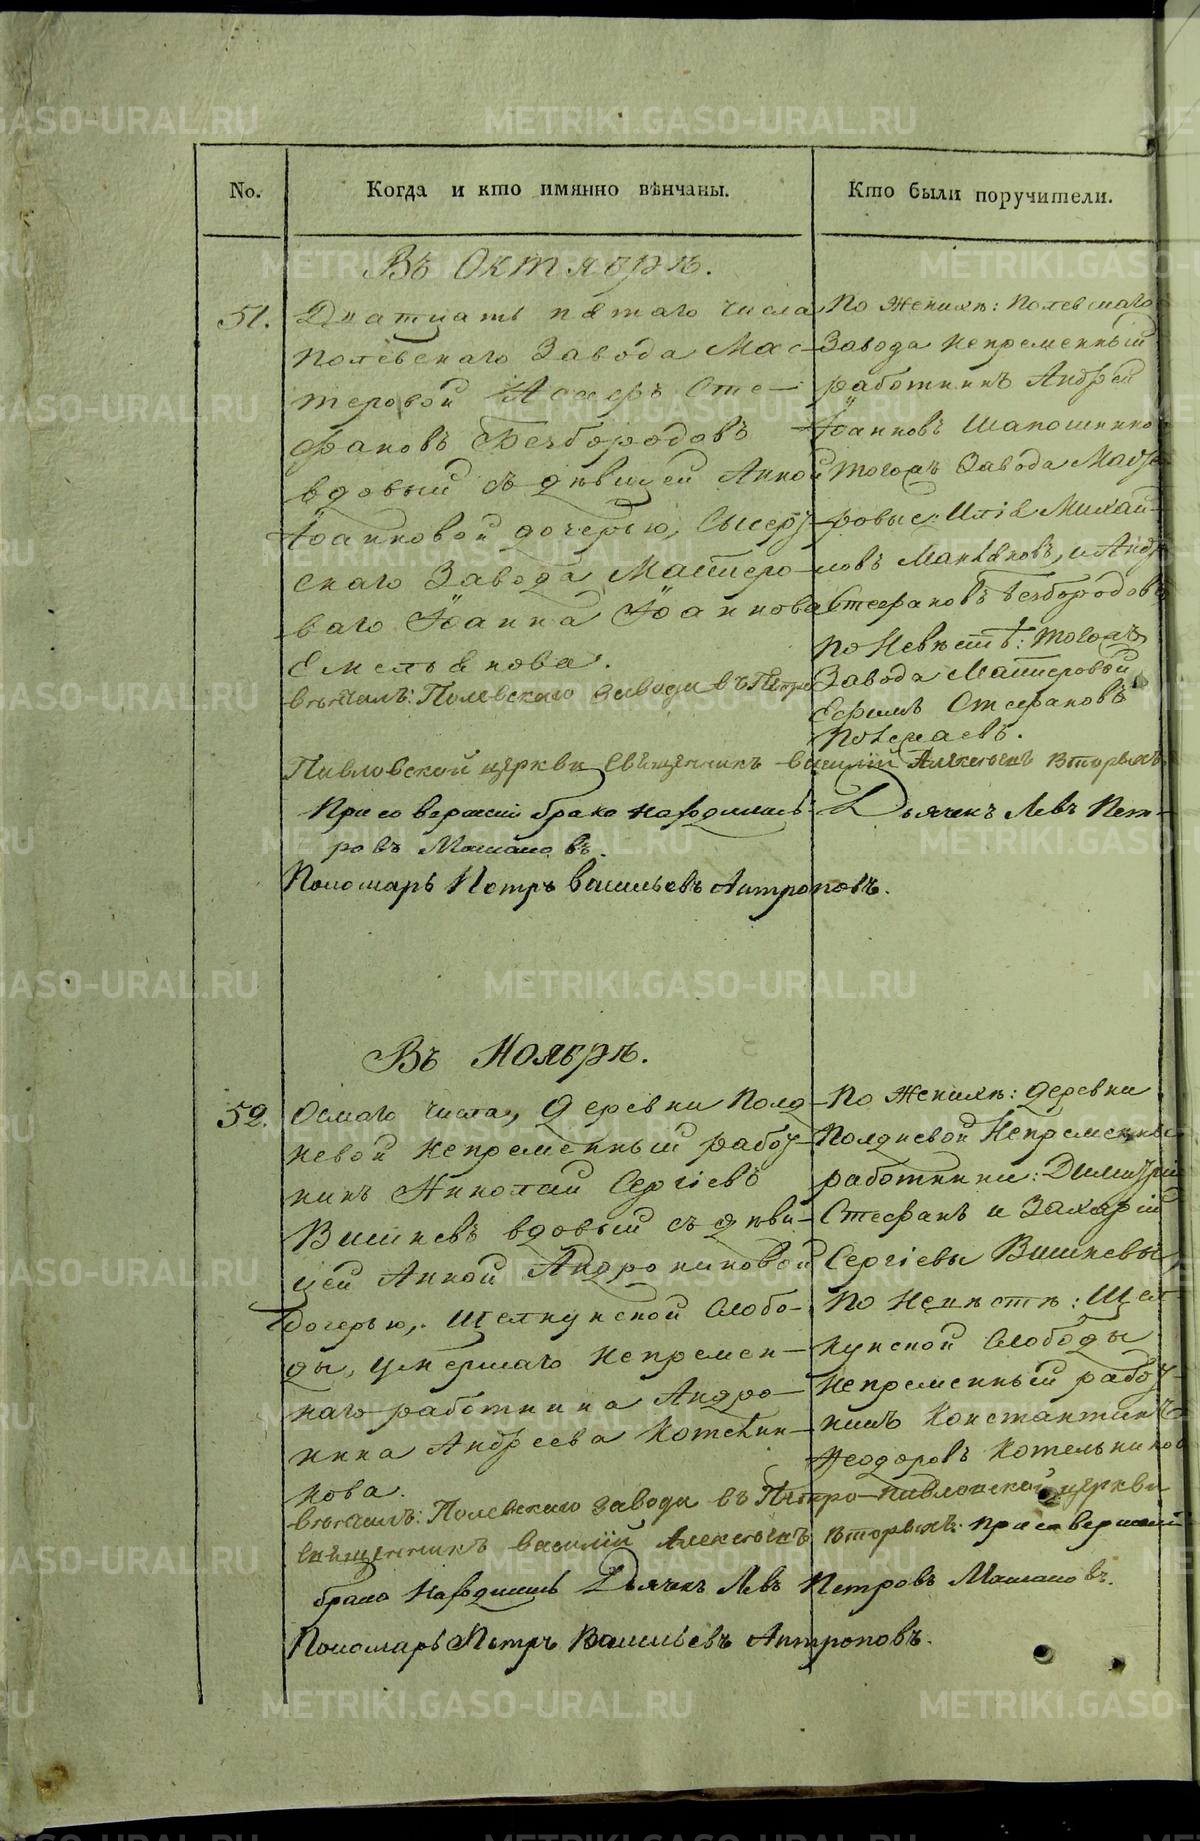 No.
Когда и кто имянно вѣнчаны.
Кто были поручители.
Въ Октябрѣ.
51.
Дватцать пятаго числа
Полевскаго Завода Мас-
теровой Асафъ Сте-
фановъ Безбородовъ
вдовый съ дѣвицей Анной
Іоанновой дочерью, Сысерт-
скаго Завода Мастеро-
ваго Іоанна Іоаннова
Емельянова.
По Женихѣ: Полевскаго
Завода Непременный
работникъ Андрей
Іоанновъ Шапошнико
тогожъ Завода Масте-
ровые: Илія Михаи-
ловъ Маньковъ, и Андр
Стефановъ Безбородовъ
по Невѣстѣ: тогожъ
Завода Мастеровой
Ефимъ Стефановъ
вѣнчалъ: Полевскаго завода въ Петро
Павловской церкви Священникъ Василій Алексѣевъ Вторыхъ
При совершеніи брака находились: Дьячекъ Левъ Пет-
ровъ
Пономарь Петръ Васильевъ Антроповъ.
Въ Ноябрѣ.
52.
Осмаго числа, деревни Полд-
невой Непременный работ-
никъ Николай Сергіевъ
Вшивцевъ вдовый съ дѣви-
цей Анной Андрониковой
дочерью, Щелкунской Слобо-
ды, умершаго Непремен-
наго работника Андро-
ника Андреева Котельни-
кова.
По Женихѣ: деревни
Полдневой Непременные
работники: Димитрій
Стефанъ и Захарій
Сергіевы
по Невѣстѣ: Щел
кунской Слободы
Непременный работ-
никъ Константинъ
Ѳеодоровъ Котельников
вѣнчалъ: Полевскаго завода въ Петро-Павловской церкви
Священникъ Василій Алексѣевъ Вторыхъ. При совершеніи
брака находились Дьячекъ Левъ Петровъ
Пономарь Петръ Васильевъ Антроповъ.